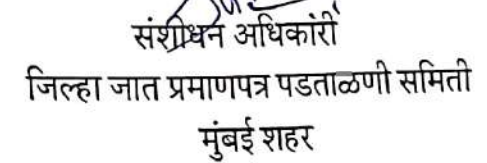 संशोधन अधिकारी
जिल्हा जात प्रमाणपत्र पडताळणी समिती
मुंबई शहर